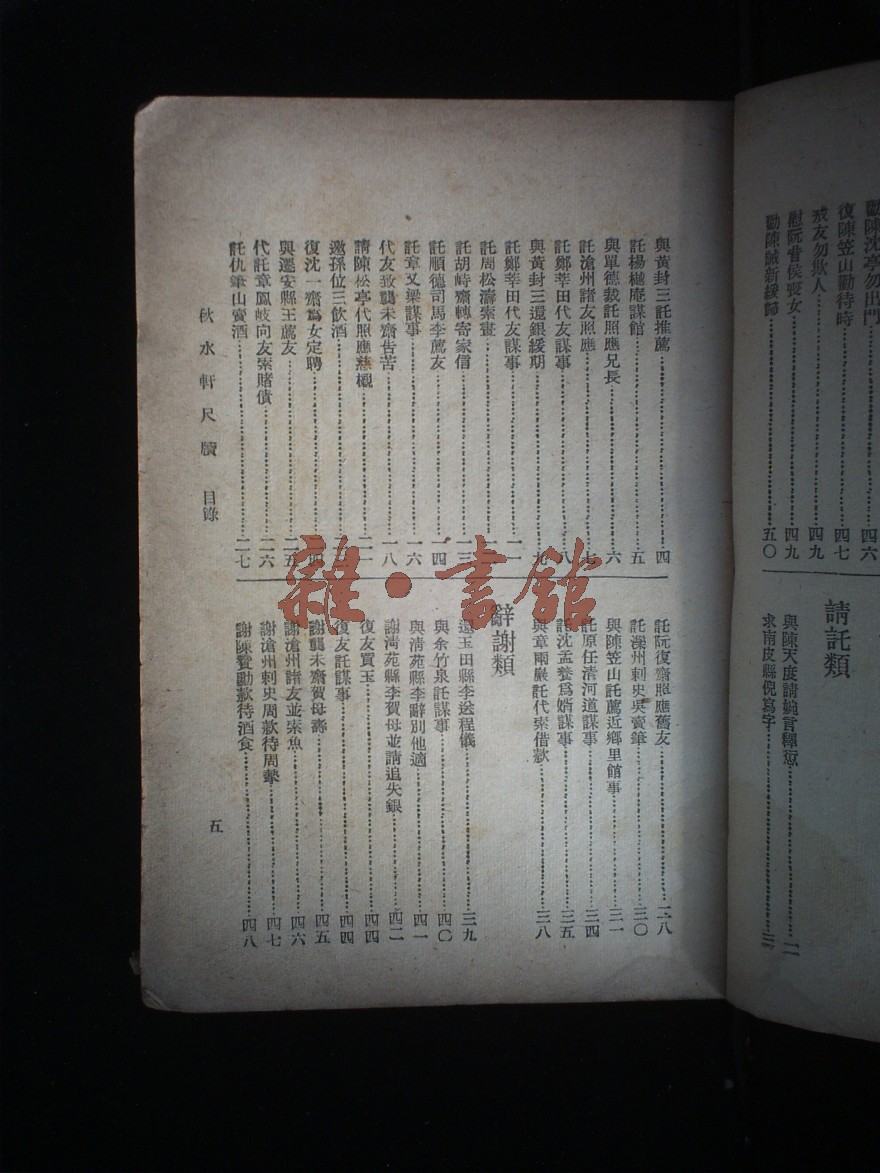 勸陳沈亭勿出門……四六
復陳笠山勸待時……四七
戒友勿欺人……四九
慰阮昔侯喪女……四九
勸陳誠新緩歸……五〇
請託類
與陳天度請婉言釋愆……二
求南皮縣倪寫字……三
與黃封三託推薦……四
託楊樾庵謀館……五
與單德裁託照應兄長……六
託滄州諸友照應……七
託鄭莘田代友謀事……八
與黃封三還銀緩期……九
託鄭莘田代友謀事……一一
託周松濤索畫……一
託胡峙齋轉寄家信……一三
託順德司馬李薦友……一四
託章又梁謀事……一六
代友致龔未齋告苦……一八
請陳松亭代照應慈櫬……二一
邀孫位三飲酒
復沈一齋為女定聘
與遷安縣王薦友……二五
代託章鳳岐向友索賭債……二六
託仇筆山賣酒……二七
託阮復齋照應舊友……二八
託灤州刺史吳賣筆……三〇
與陳笠山託薦近鄉里館事……三一
託原任清河道謀事……三四
託沈孟養為婿謀事……三五
與章雨巖託代索借款……三八
辭謝類
還玉田縣李送程儀……三九
與余竹泉託謀事……四〇
與清苑縣李辭別他適……四一
謝清苑縣李賀母並請追失銀……四二
復友買玉……四四
復友託謀事……四四
謝龔未齋賀母壽……四五
謝滄州諸友並索魚……四六
謝滄州刺史周款待周摯……四七
謝陳贊勳款待酒食……四八
秋水軒尺牘 目錄
五
雜·書館